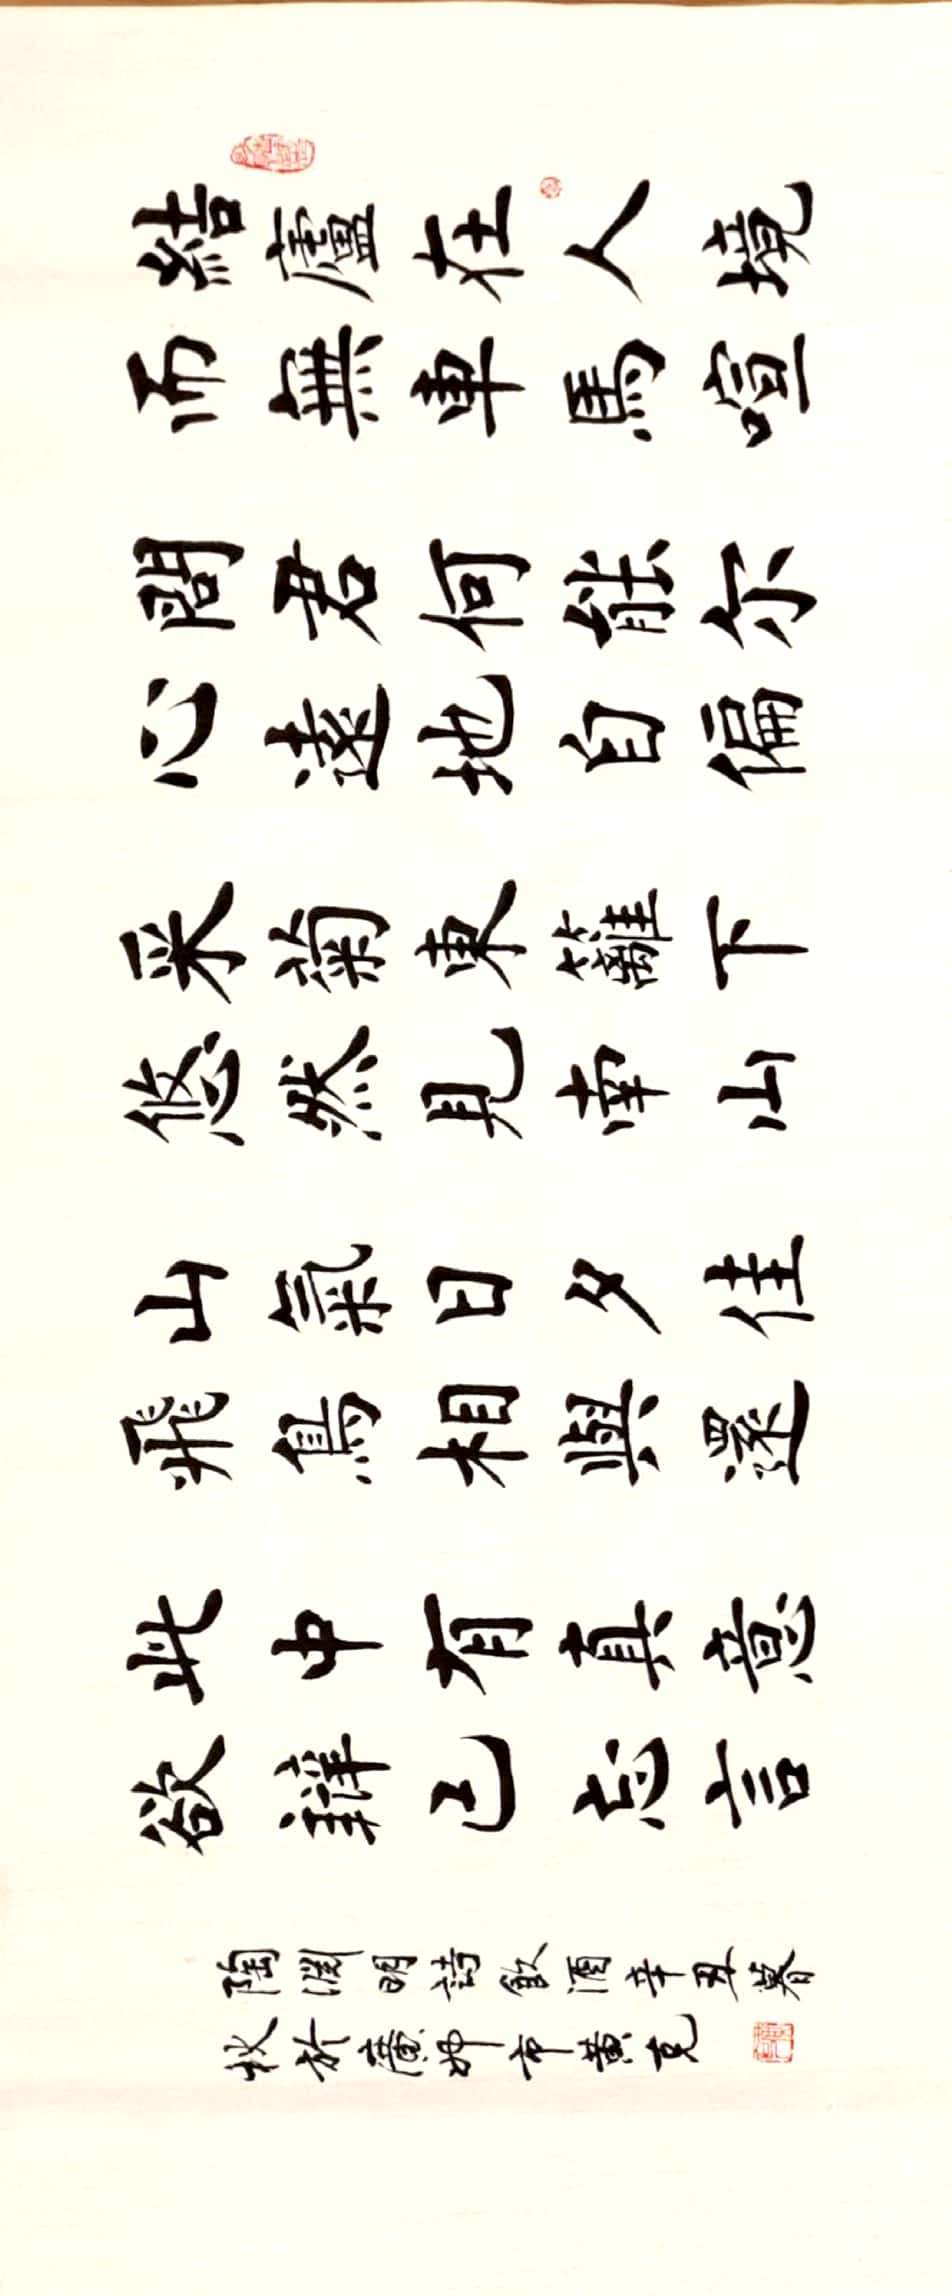 結廬在人境
而無車馬喧
問君何能尔
心遠地自偏
采菊東籬下
悠然見南山
山氣日夕佳
飛鳥相與還
此中有真意
欲辯已忘言
陶淵明詩飲酒辛丑暮
秋於市黃克